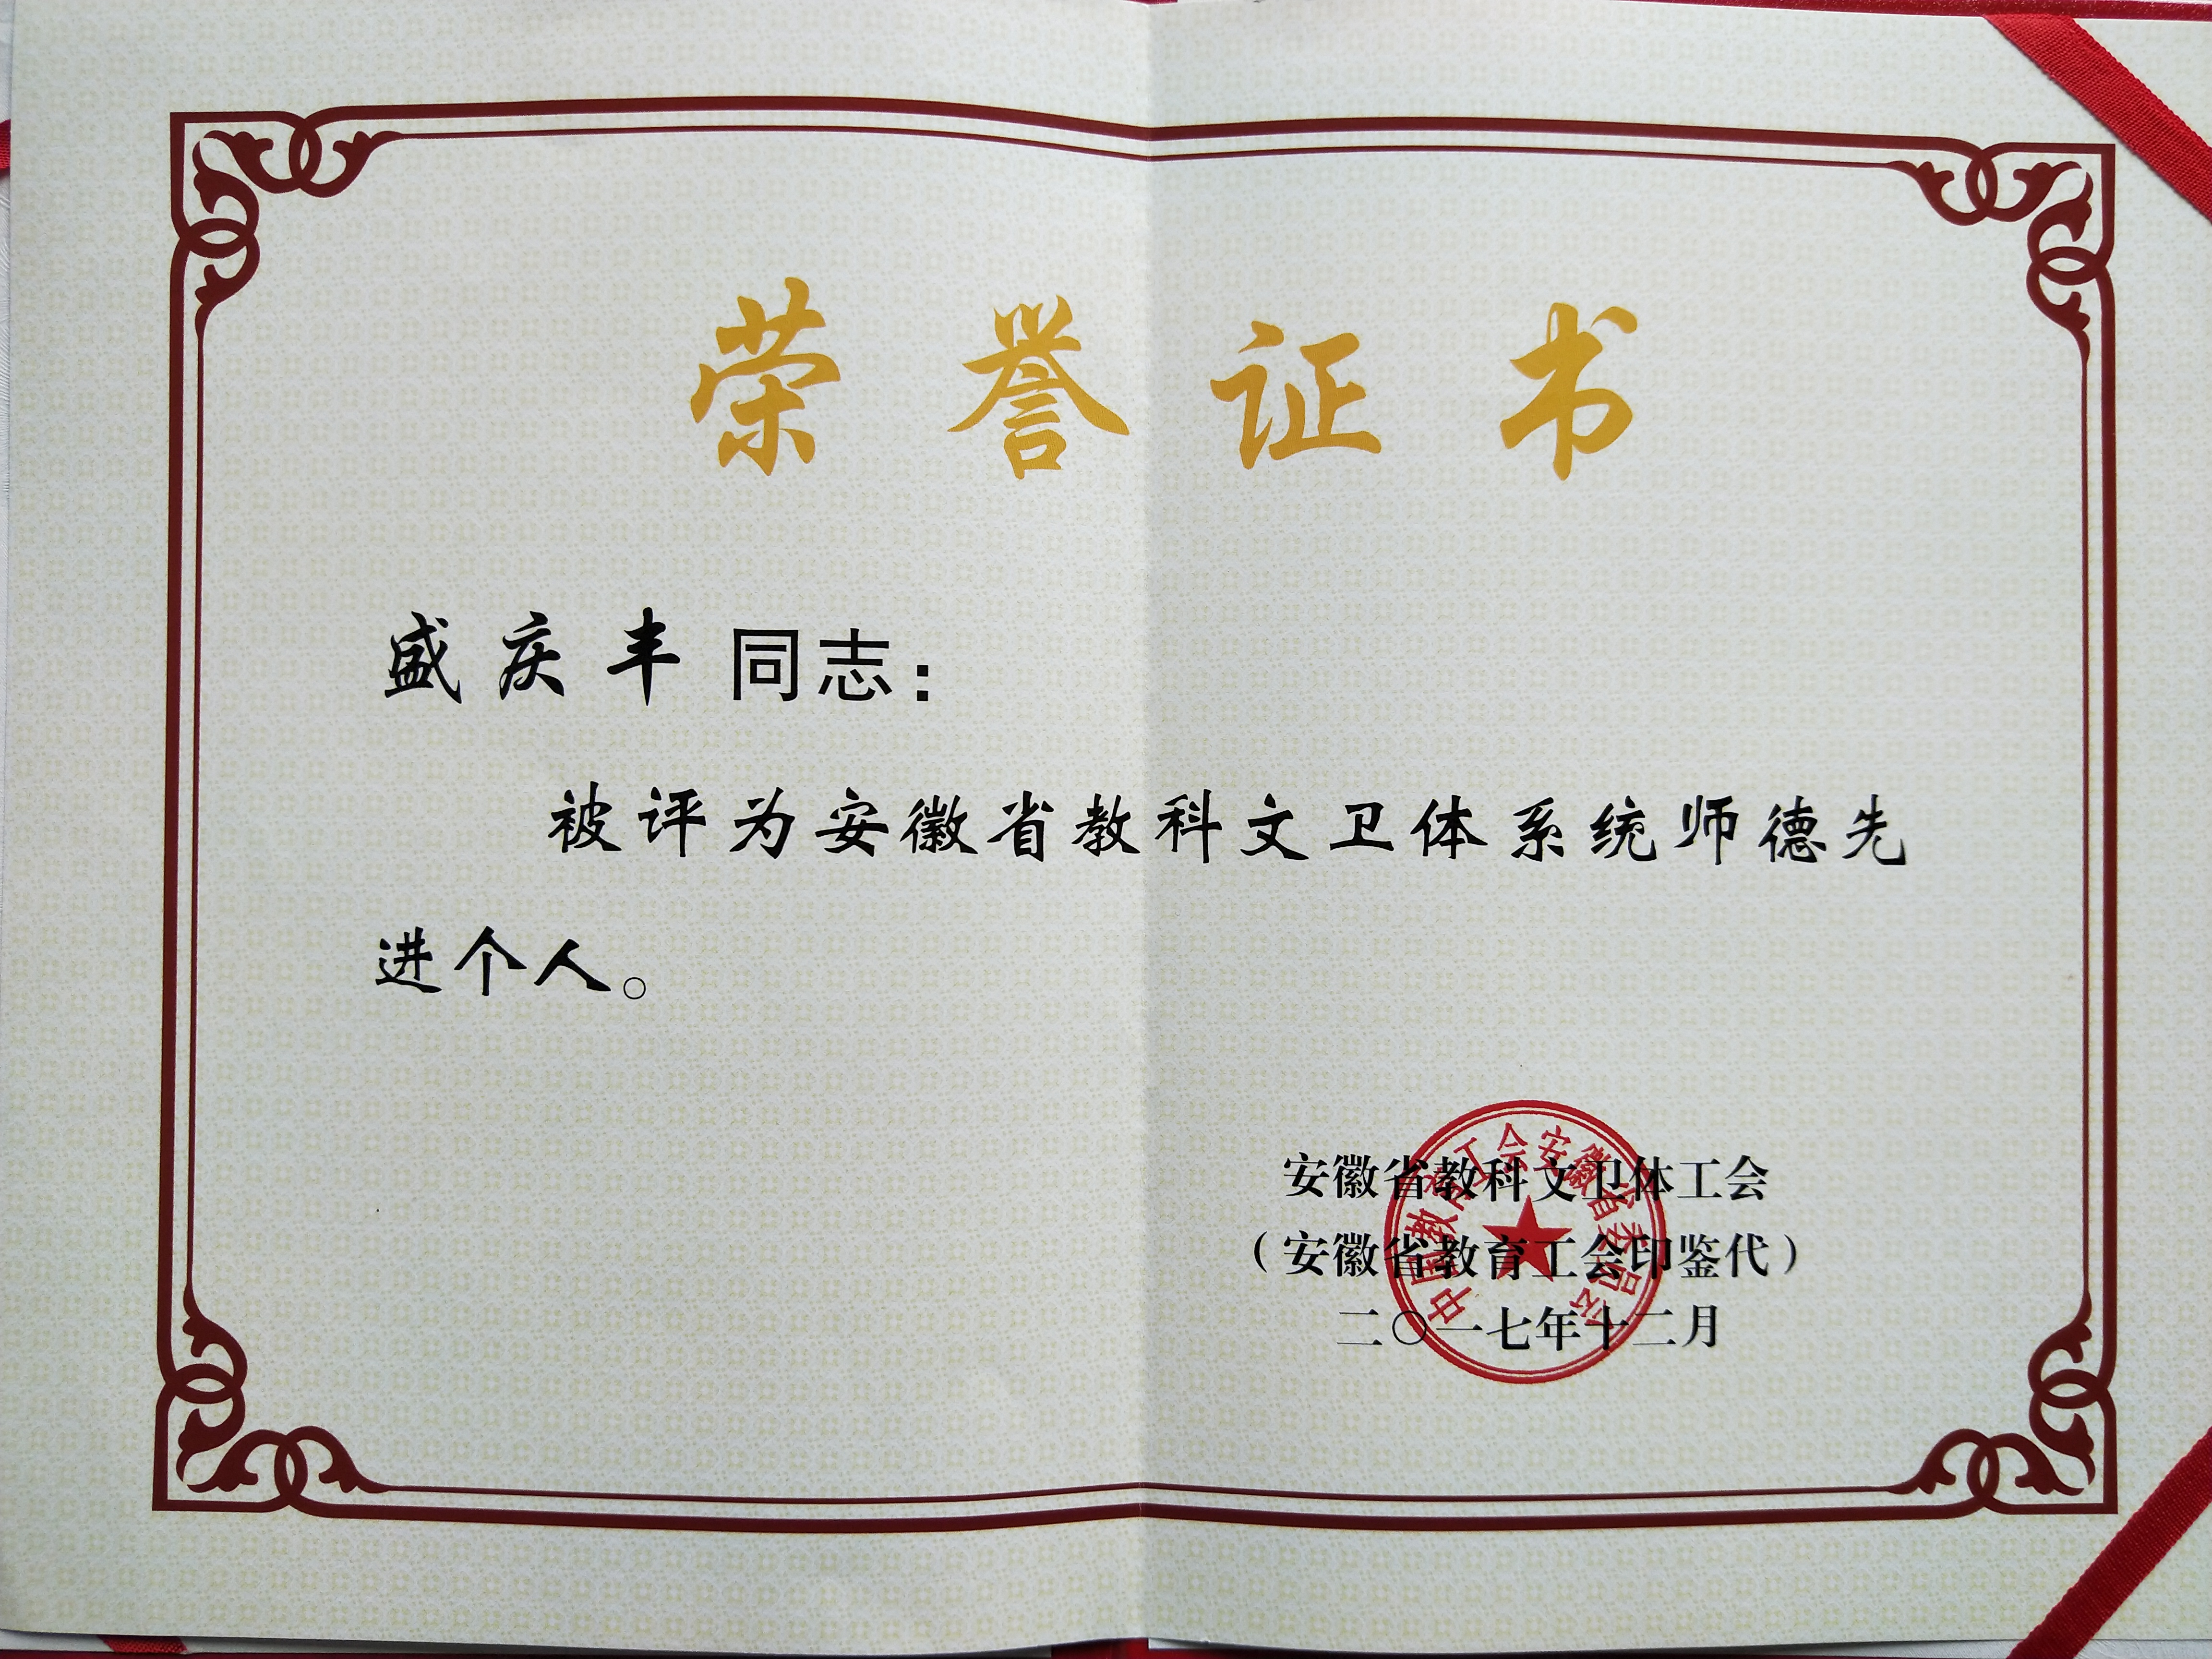 荣誉证书
盛庆丰同志：
被评为安徽省教科文卫体系统师德先
进个人。
安徽省教科文卫体工会
（安徽省教育工会印鉴代）
二〇一七年十二月
中国教育工会安徽省委员会